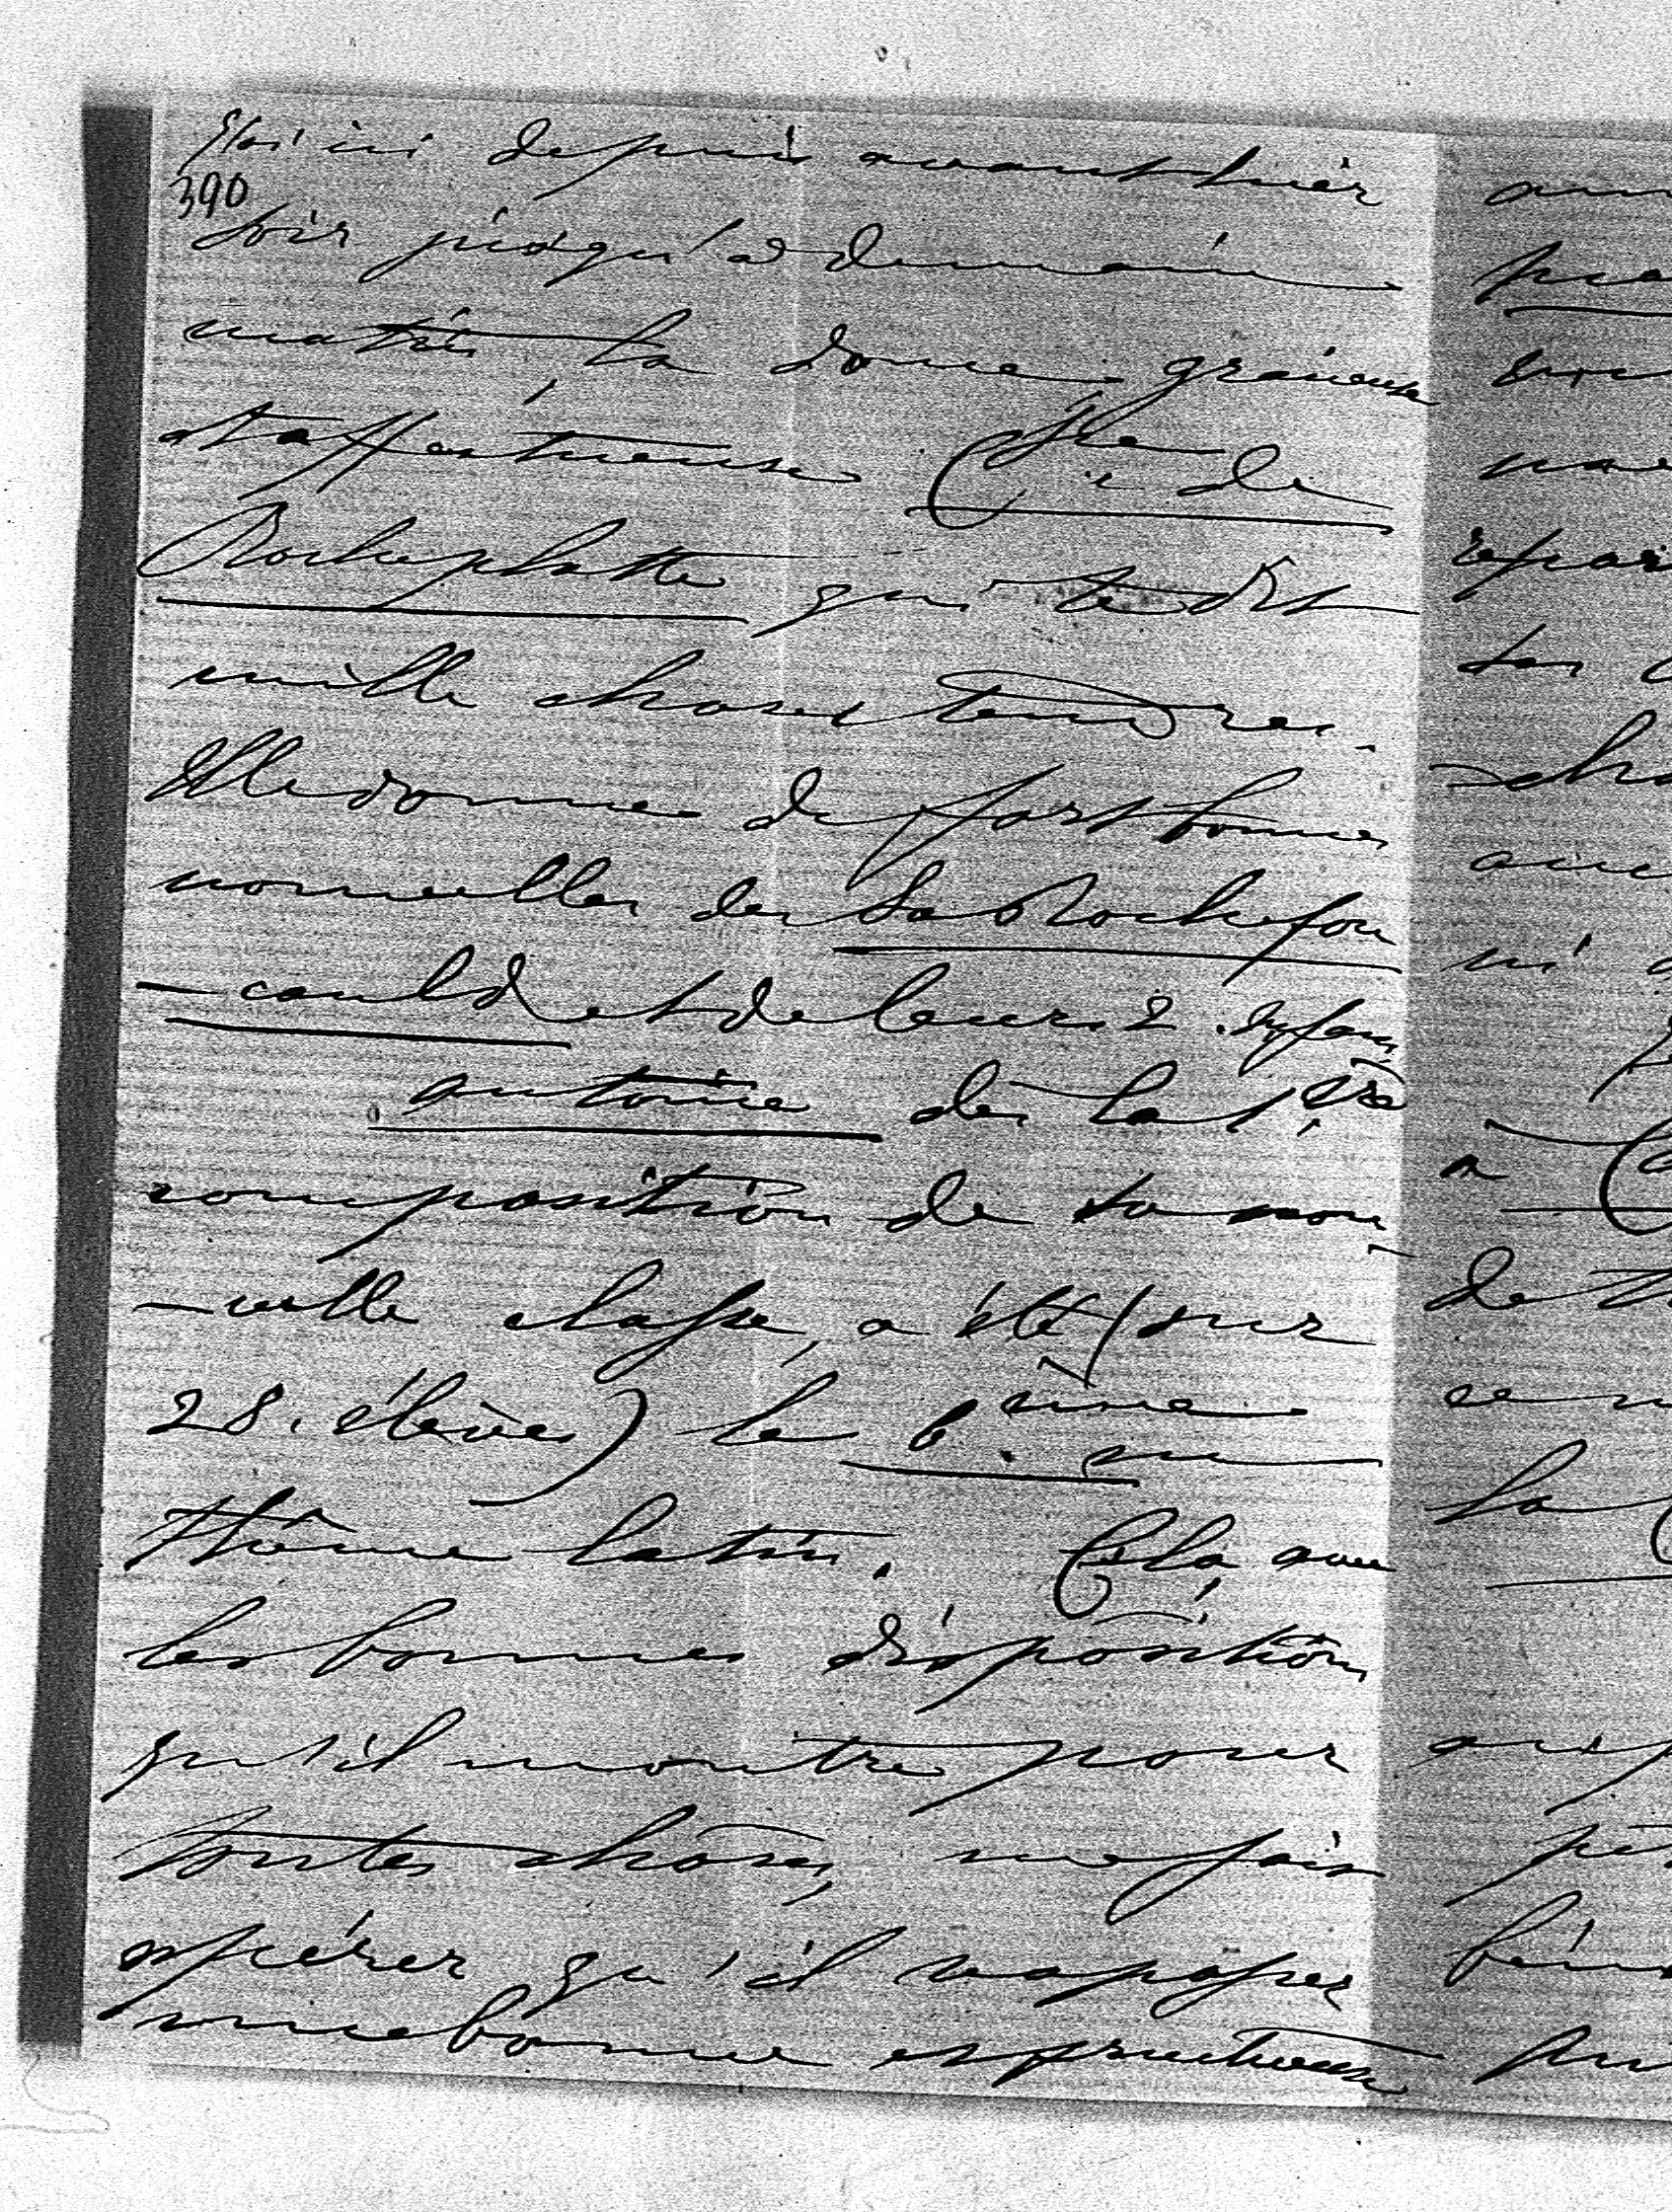 J'ai ici depuis avant hier
390
soir jusqu'à demain
matin, la bonne, gracieuse
et affectueuse Ctesse de
Rocheplatte qui te dit
mille choses tendres.
Elle donne de fort bonnes
nouvelles des La Rochefou
-cauld et de leurs 2. enfans
antoine de la 1ère
composition de sa nou
-velle classe, a été (sur
28. élèves) le 6.ème en
thême latin. Cela, avec
les bonnes dispositions
qu'il montre pour
toutes choses, me fait
espérer qu'il va passer
une bonne et fructueuse